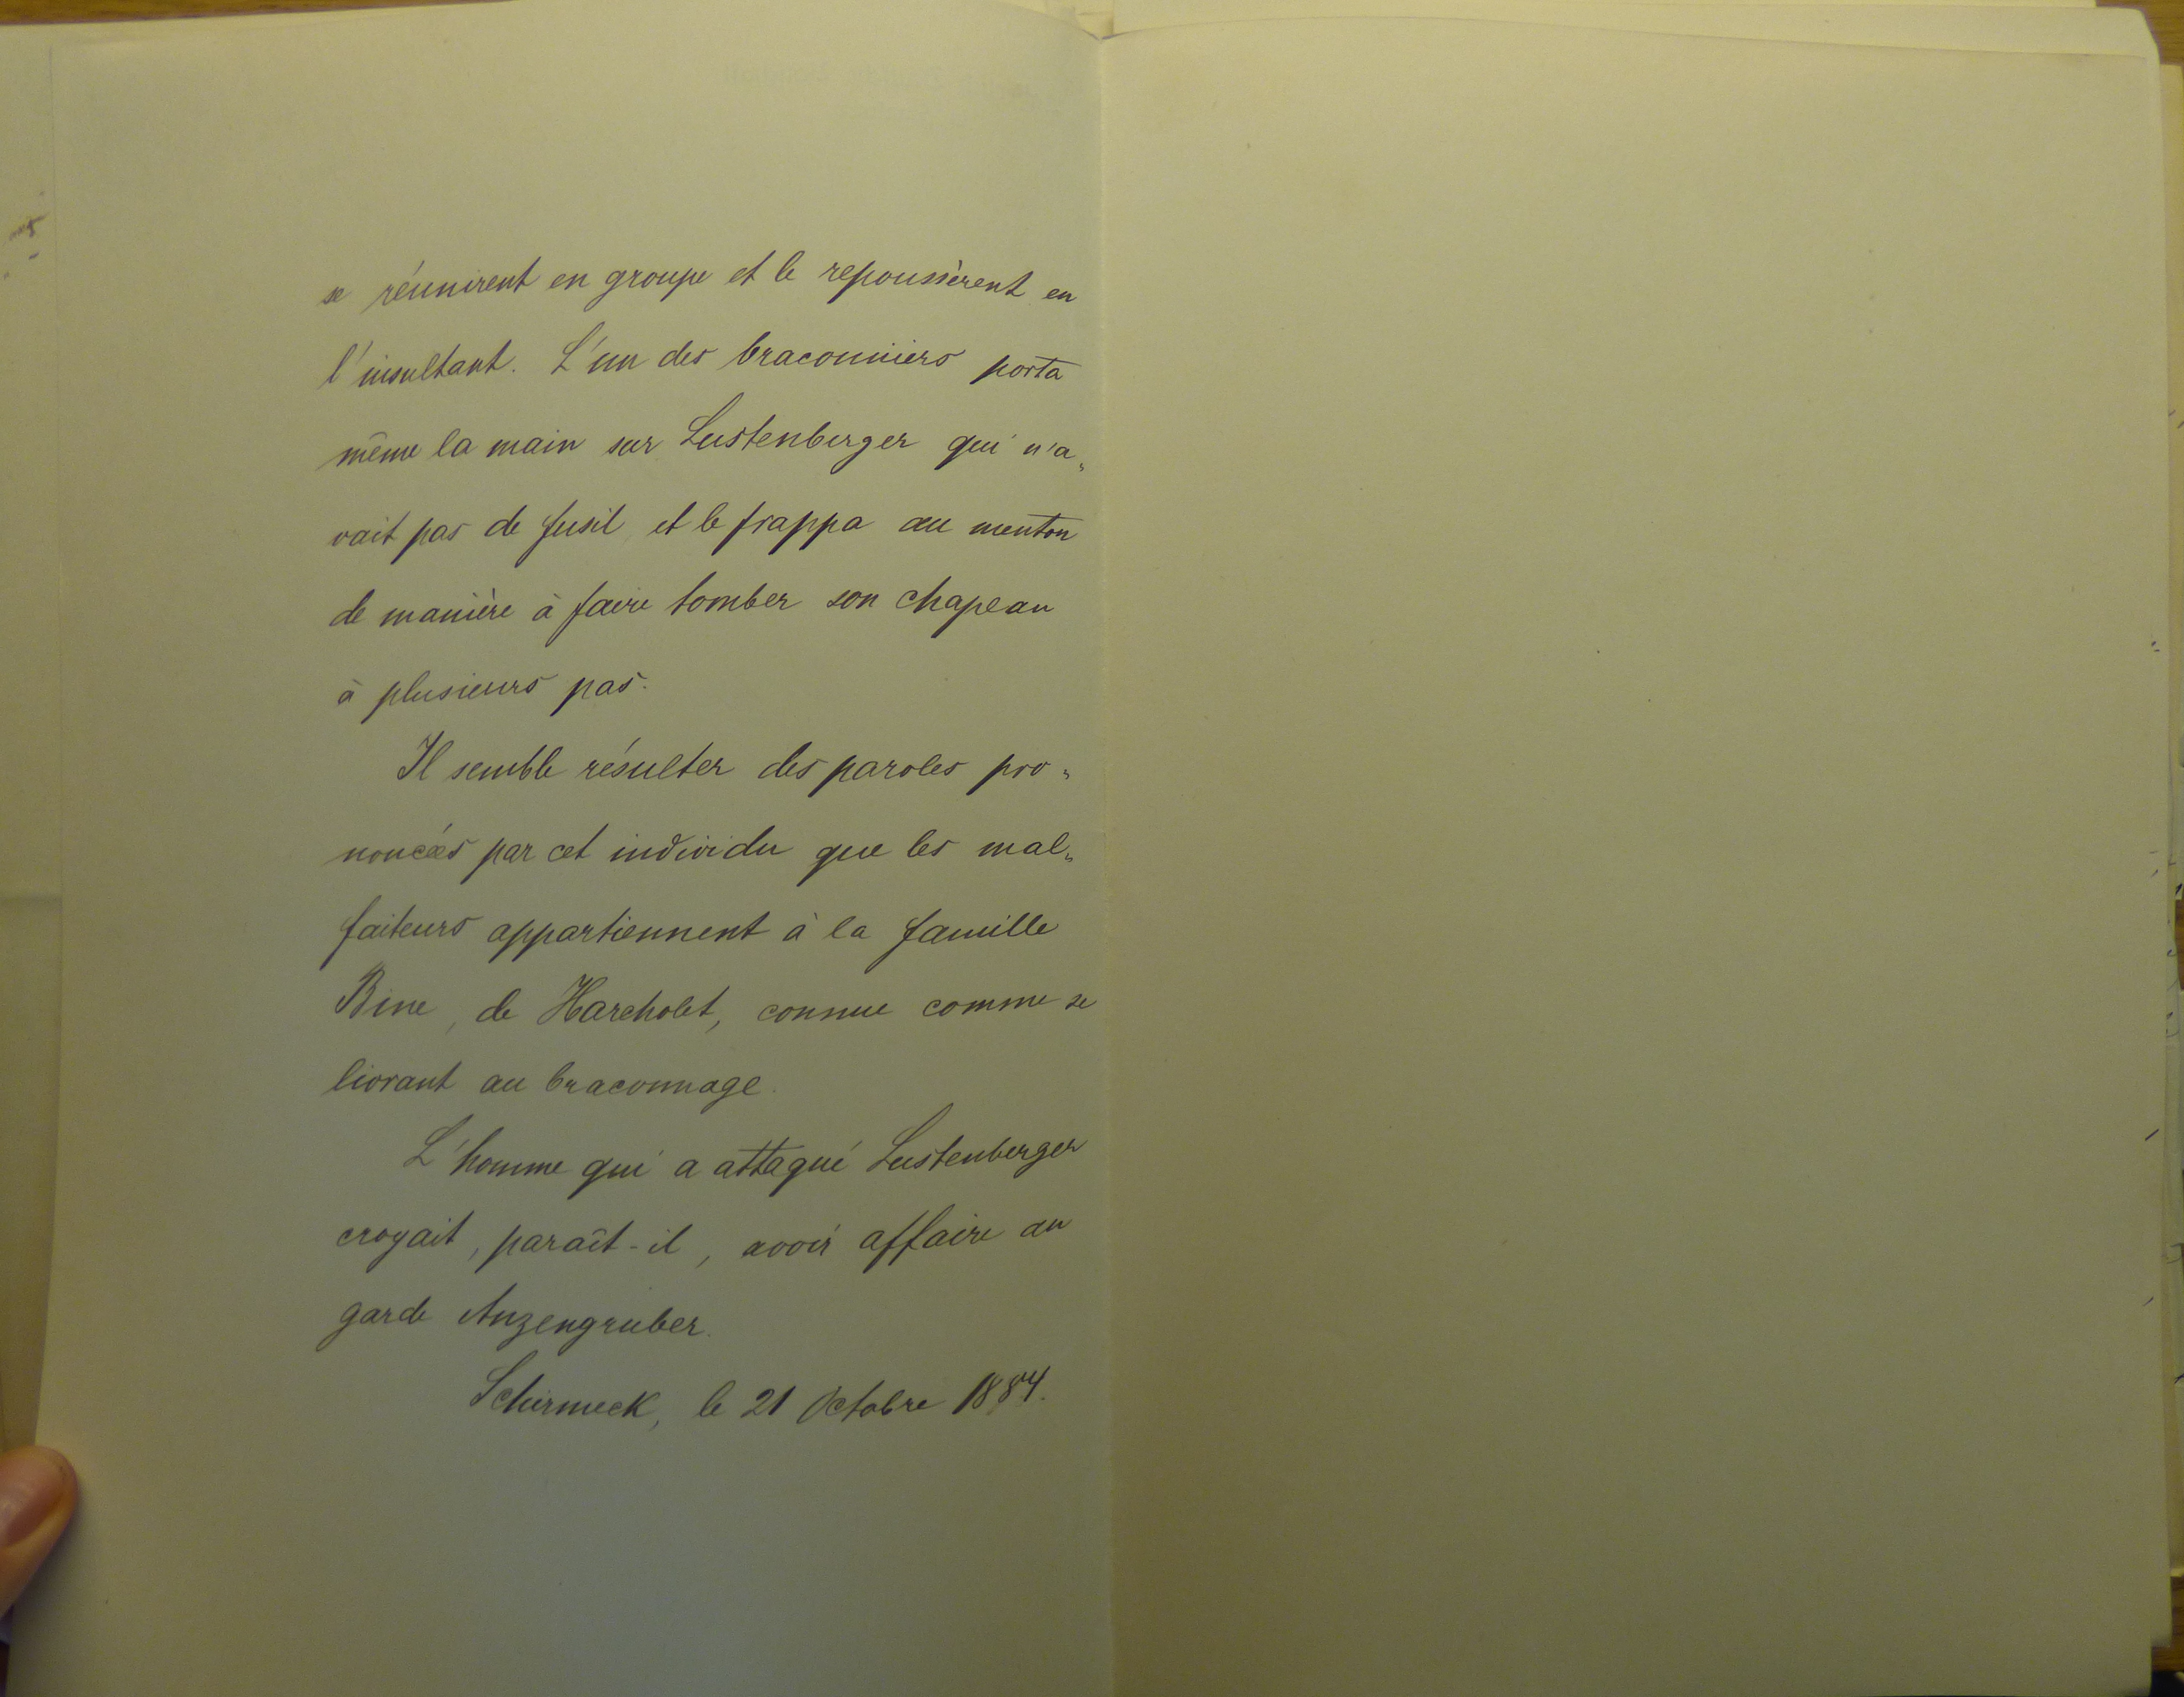 se réunirent en groupe et le repoussèrent en
l'insultant. L'un des braconniers porta
même la main sur Lustenberger qui n'a-
vait pas de fusil, et le frappa au menton
de manière à faire tomber son chapeau
à plusieurs pas.
Il semble résulter des paroles pro-
noncées par cet individu que les mal-
faiteurs appartiennent à la famille
Bine, de Harcholet, connue comme se
livrant au braconnage.
L'homme qui a attaqué Lustenberger
croyait, paraît-il, avoir affaire au
garde Anzengruber.
Schirmeck, le 21 Octobre 1884.